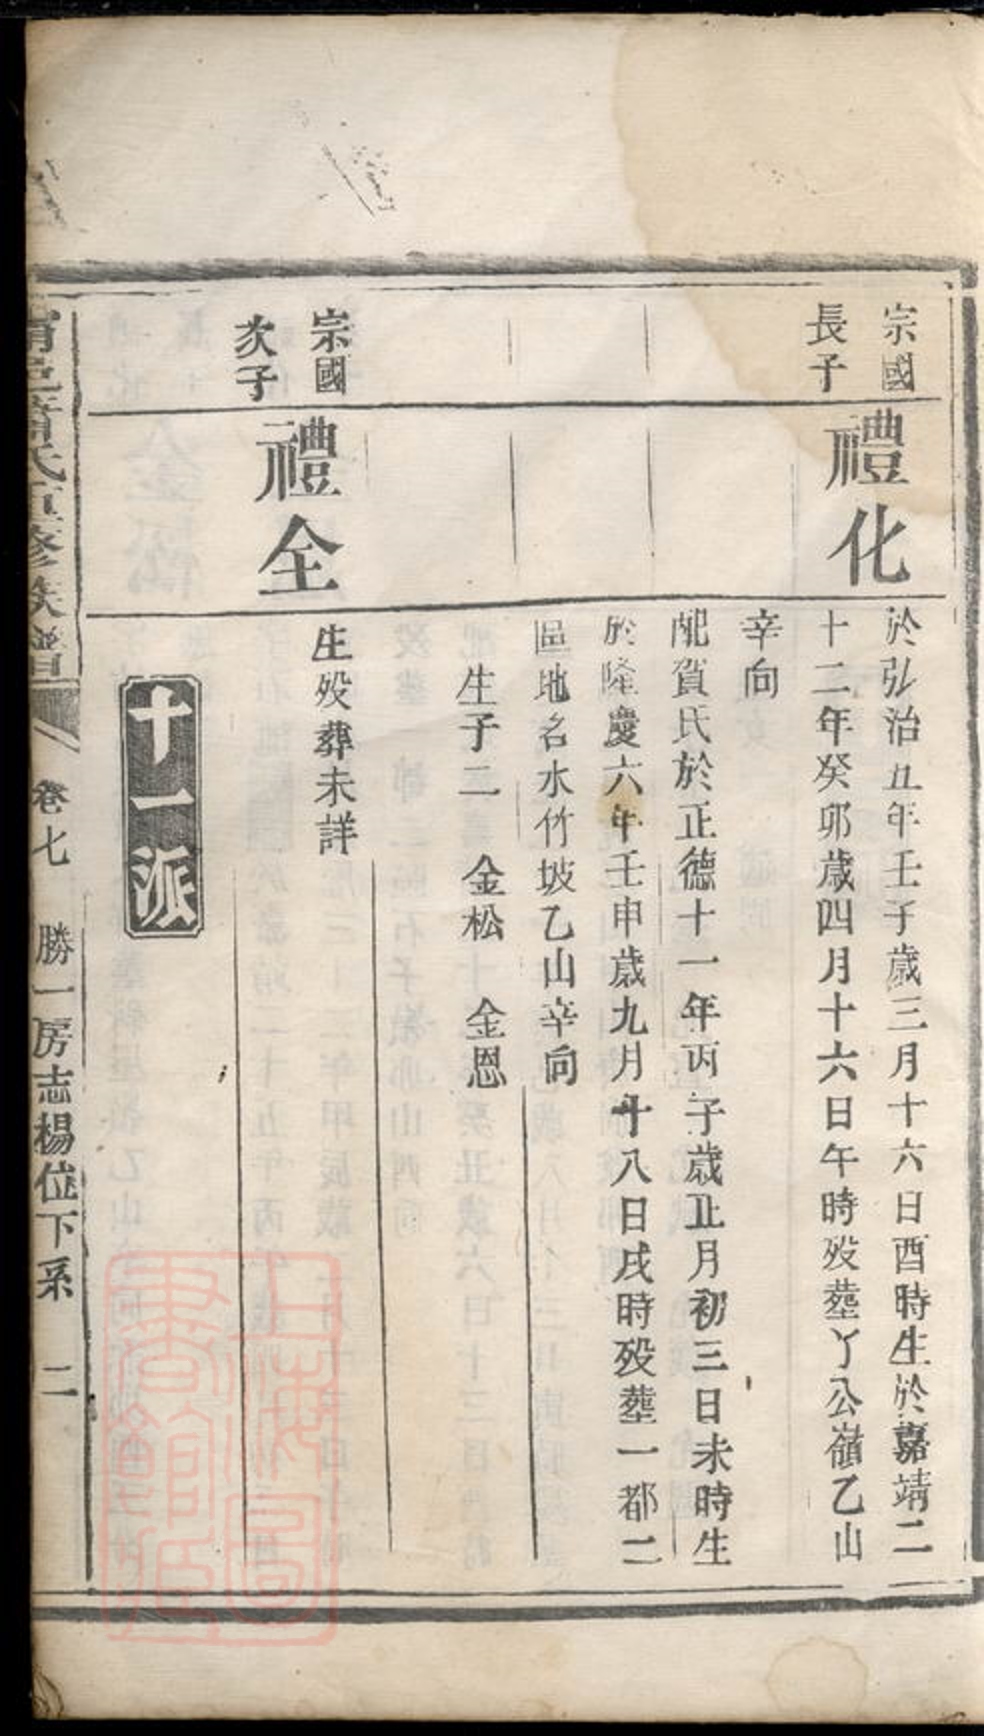 宗國
長子
禮化
於弘治五年壬子歲三月十六日酉時生於嘉靖二
十二年癸卯歲四月十六日午時歿塟丫公嶺乙山
辛向
配賀氏於正德十一年丙子歲正月初三日未時生
於隆慶六年壬申歲九月十八日戌時歿塟一都二
區地名水竹坡乙山辛向
生子二 金松 金恩
宗國
次子
禮全
生歿葬未詳
十一派
氏五修族譜 卷七 勝一房志楊位下系 二
上海圖書館藏